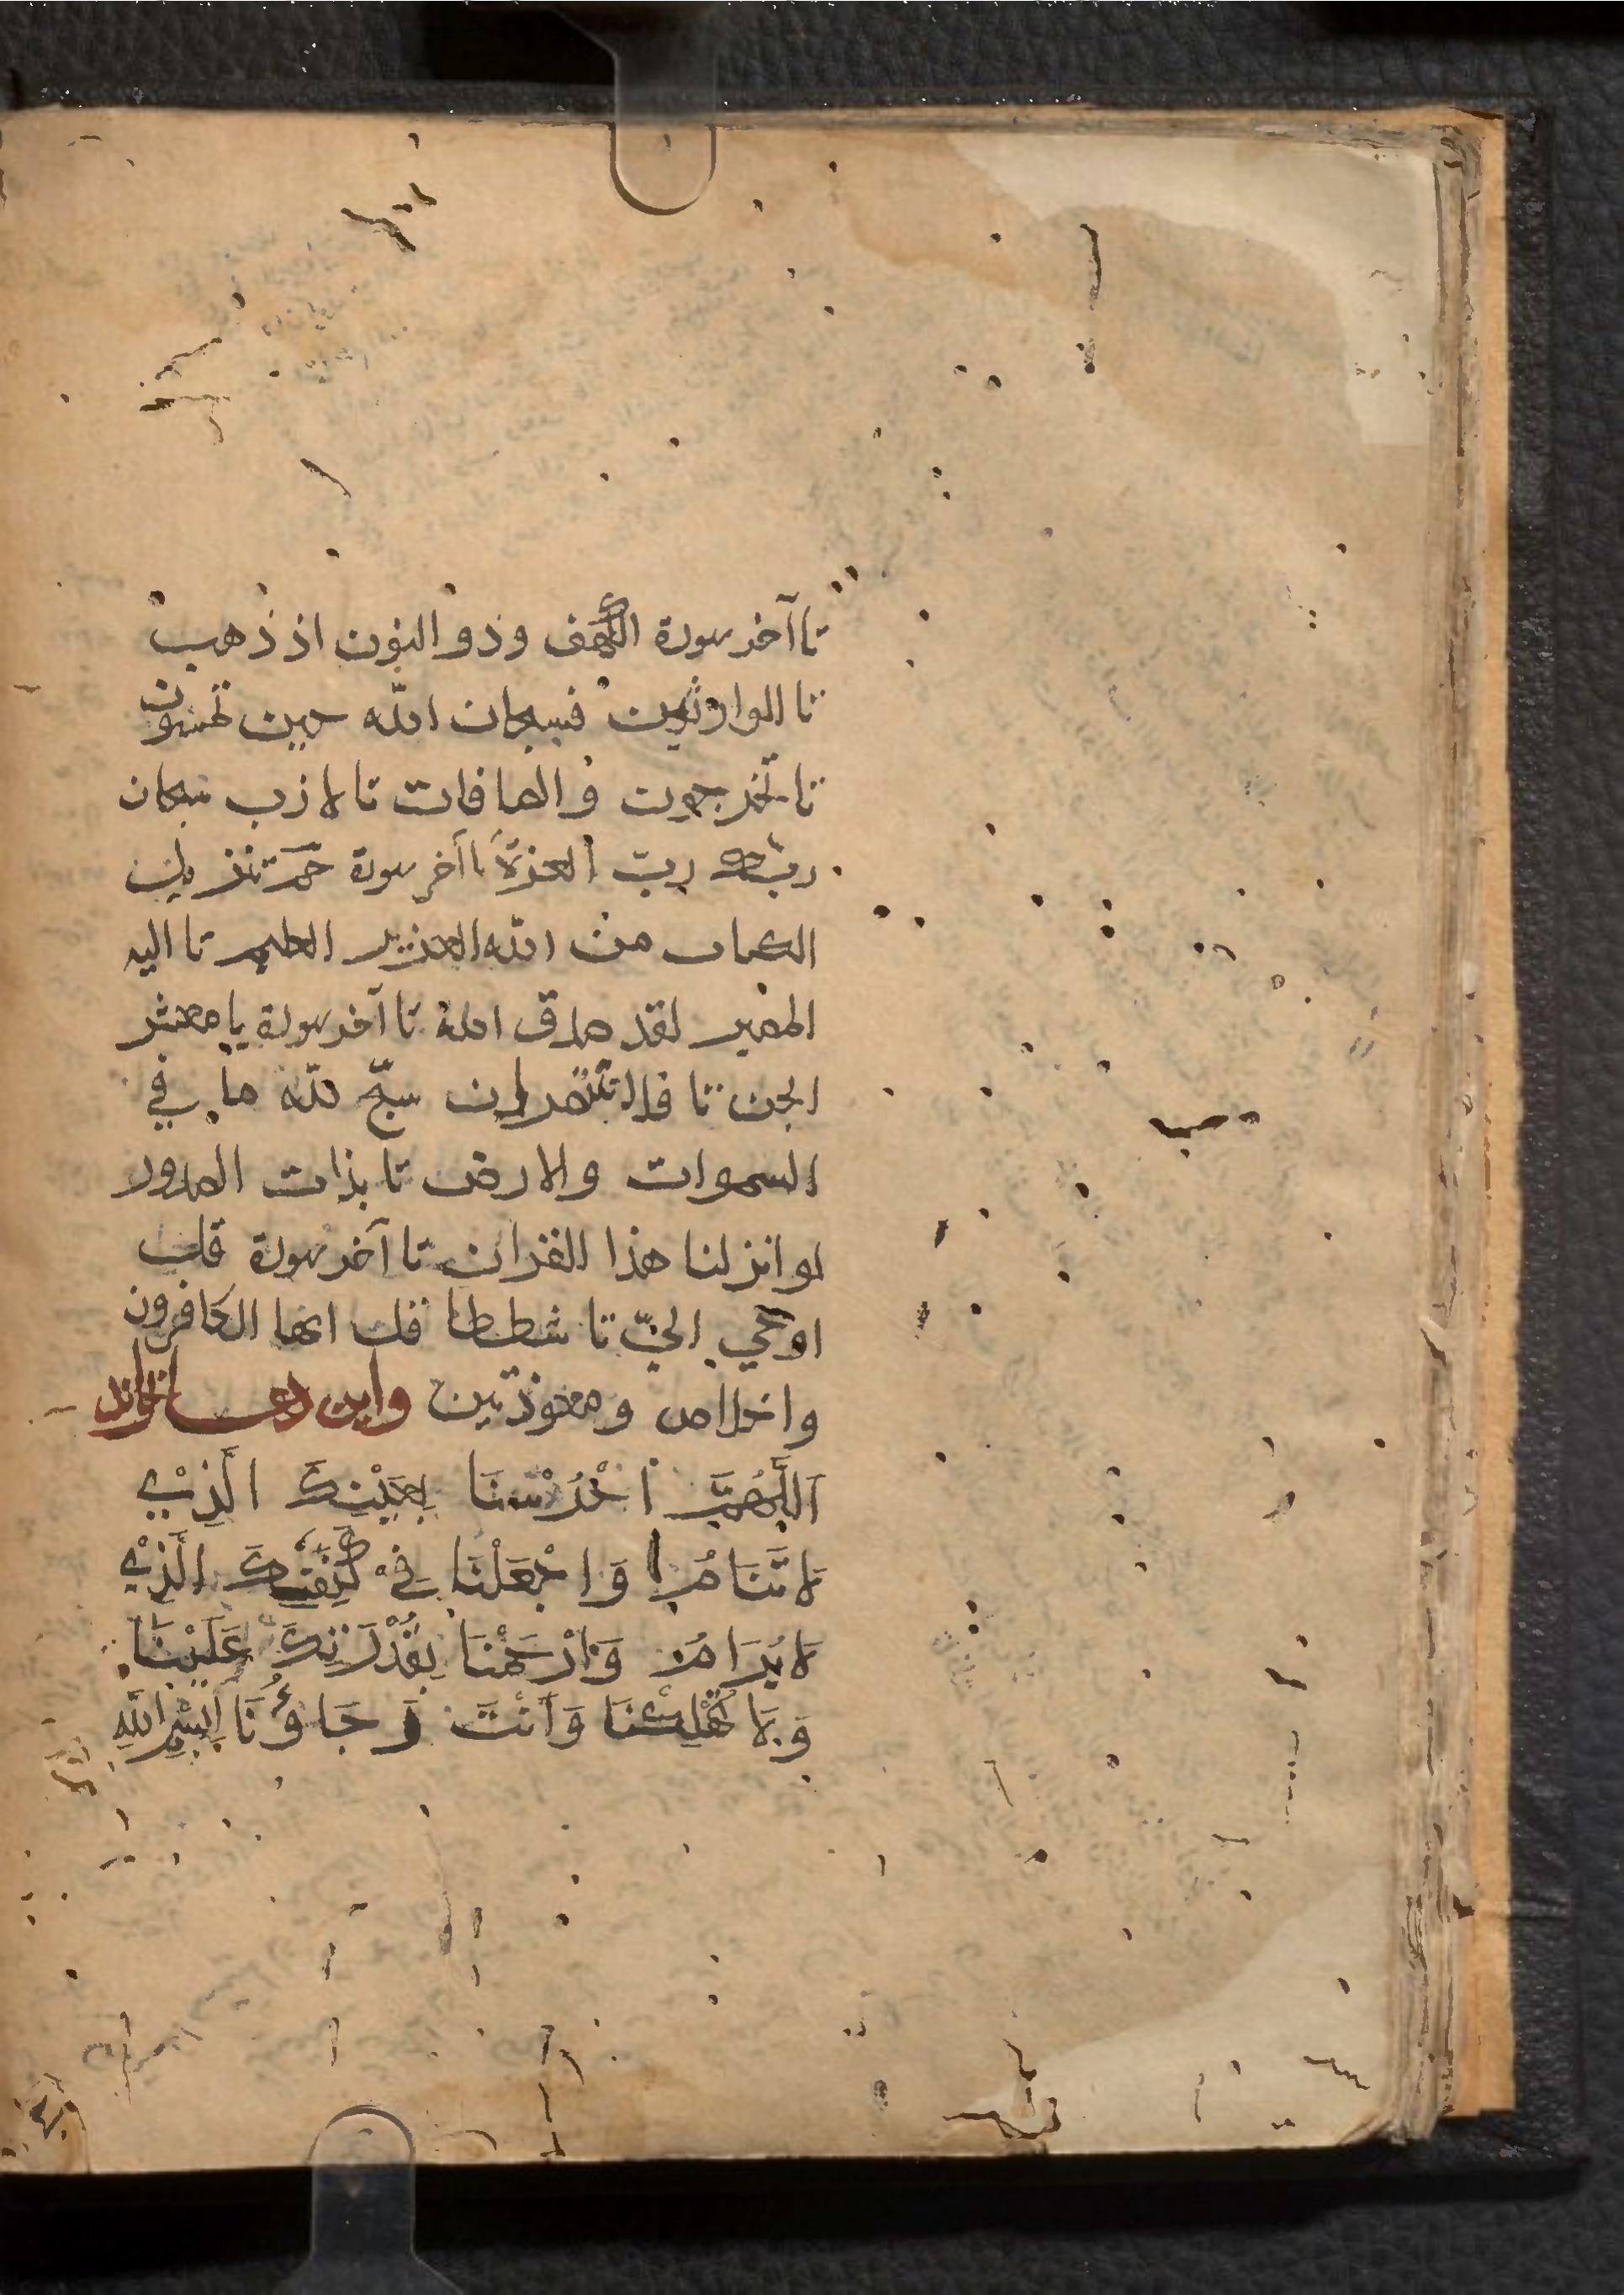 تا آخر سورة الكهف وذو النون اذ ذهب
تا الوارثين فسبحان الله حين تمسون
تا تخرجون والصافات تا لازب سبحان
ربك رب العزة تا آخر سورة حم تنزيل
الكتاب من الله العزيز العليم تا اليه
المصير لقد صدق الله تا آخر سورة يا معشر
الجن تا فلا تنتصران سبح لله ما في
السموات والارض تا بذات الصدور
لو انزلنا هذا القران تا آخر سورة قل
اوحي الي تا شططا قل ايها الكافرون
واخلاص ومعوذتين واين دعا بخواند
اَللّٰهُمَّ احْرُسْنَا بِعَيْنِكَ الَّذِيْ
لَا تَنَامُ وَاجْعَلْنَا فِيْ كَنَفِكَ الَّذِيْ
لَا يُرَامُ وَارْحَمْنَا بِقُدْرَتِكَ عَلَيْنَا
وَلَا تُهْلِكْنَا وَاَنْتَ رَجَاؤُنَا بِسْمِ اللّٰهِ